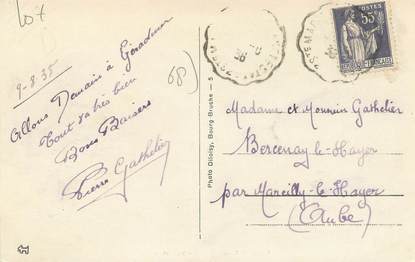 Lot
9-8-35
Allons Demain à Gérardmer
Tout va très bien
Bons Baisers
Pierre Gathelier
68)
Photo Didoisy, Bourg-Bruche — 5
POSTES
55c
Madame et Monsieur Gathelier
Bercenay-le-Hayer
par Marcilly-le-Hayer
(Aube)